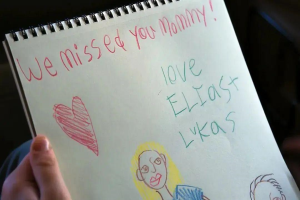 We missed you Mommy!
love
ELIAS+
LuKas